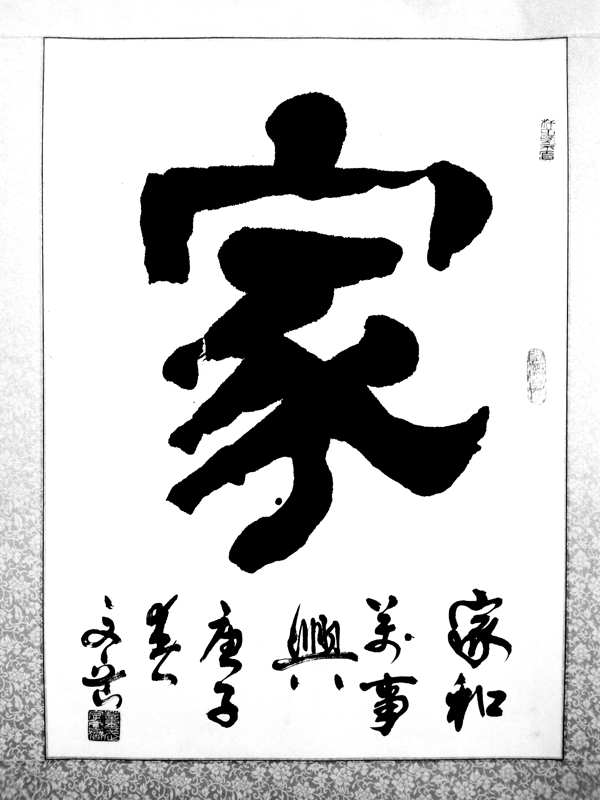 家
家和
萬事
興
庚子